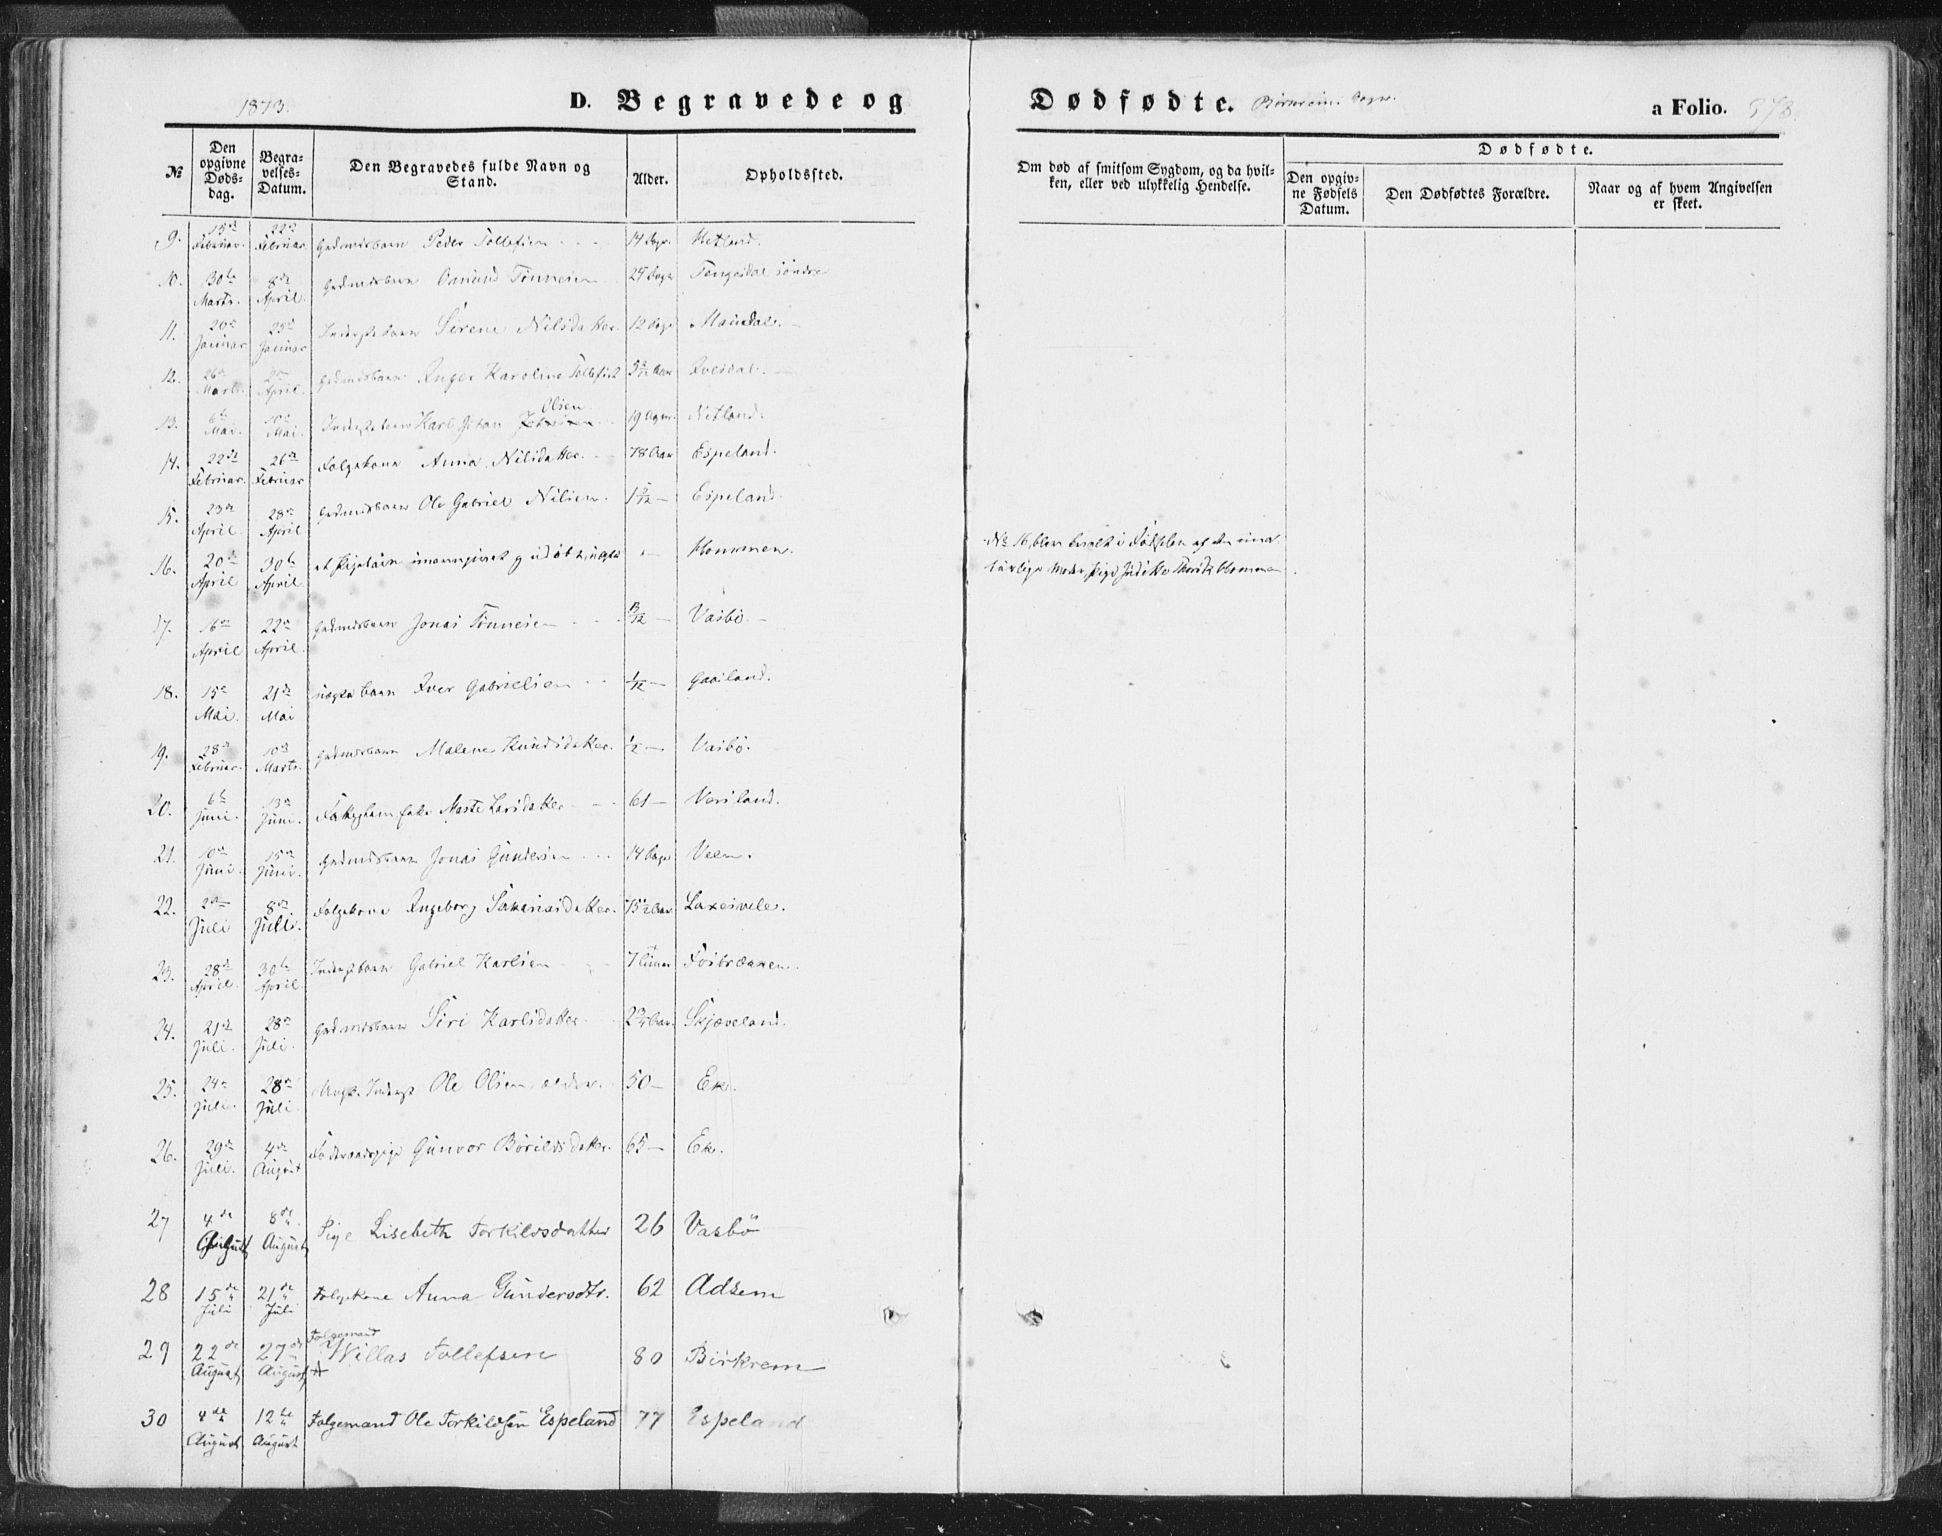 1873.
D. Begravede og
Dødfødte.
Birkreims Sogn.
a Folio. 378.
№
Den opgivne Døds-dag.
Begra-velses-Datum.
Den Begravedes fulde Navn og Stand.
Alder.
Opholdssted.
Om død af smitsom Sygdom, og da hvil-
ken, eller ved ulykkelig Hendelse.
Dødfødte.
Den opgiv-ne Fødsels Datum.
Den Dødfødtes Forældre.
Naar og af hvem Angivelsen er skeet.
9. 15de Februar. 22de Februar Gaardmandsbarn Peder Tollefsen 14 Dage Netland.
10. 30te Marts. 8de April. Gaardmandsbarn Tønnesen 24 Dage Tengesdal søndre
11. 20de Januar 25de Januar Inderstbarn Sirene Nilsdatter. 12 Dage Maudal.
12. 26de Marts. 2den April. Gaardmandsbarn Inger Karoline Tollefsdt Aar Ivesdal.
13. 6te Mai. 10de Mai. Inderstbarn Karl Johan Olsen 19 Netland.
14. 22de Februar. 26de Februar Folgekone Anna Nilsdatter. 78 Aar Espeland.
15. 23de April. 28de April Gaardmandsbarn Ole Gabriel Nilsen. Espeland.
16. 20de April 30te April et Pigebarn unavngivet og udøbt, uægte Hommen.
No 16, blev i Fødselen af den
Moder, Pige Hommen.
17. 16de April 22de April. Gaardmandsbarn Jonas Tønnesen Vasbø.
18. 15de Mai. 21de Mai uægte barn Iver Gabrielsen 1/12 Gaasland.
19. 28de Februar. 10de Marts. Gaardmandsbarn Malene Knudsdatter. 1/2 Vasbø.
20. 6te Juni. 13de Juni. Marte Larsdatter 61 Versland.
21. 10de Juni. 15de Juni. Gaardmandsbarn Jonas Gundersen 14 Dage Veen.
22. 2den Juli 8de Juli. Folgekone Ingeborg Sakariasdatter. 75 1/2 Aar Laxesvele.
23. 28de April. 30te April Inderstbarn Gabriel Karlsen 7 Timer Fosbrækken.
24. 21de Juli. 28de Juli. Gaardmandsbarn Siri Karlsdatter 2 3/4 Aar. Skjæveland.
25. 24de Juli. 28de Juli. Ungk. Inderst Ole Olsen, ældre. 50 Ek.
26. 29de Juli. 4de August Føderaadspige Gunvor Bårildsdatter. 65 Ek.
27 4de August 8de August Pige Lisebeth Torkildsdatter 26 Vasbö
28 15de Juli 21de Juli Folgekone Anna Gundersdtr. 62 Adsem
29 22de August 27de August Folgemand Villas Tollefsen 80 Birkrem
30 4de August 12te August Folgemand Ole Torkildsen Espeland 77 Espeland